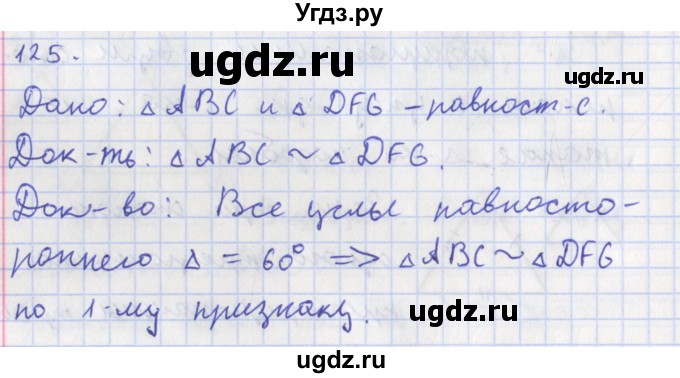 Угдз.ру
125.
ugdz.ru
Дано: △ ABC и △ DFG – равност-е.
Док-ть: △ ABC ~ △ DFG.
ugdz.ru
Док-во: Все углы равносто-
роннего △ = 60° => △ ABC ~ △ DFG
по 1-му признаку.
ugdz.ru
ugdz.ru